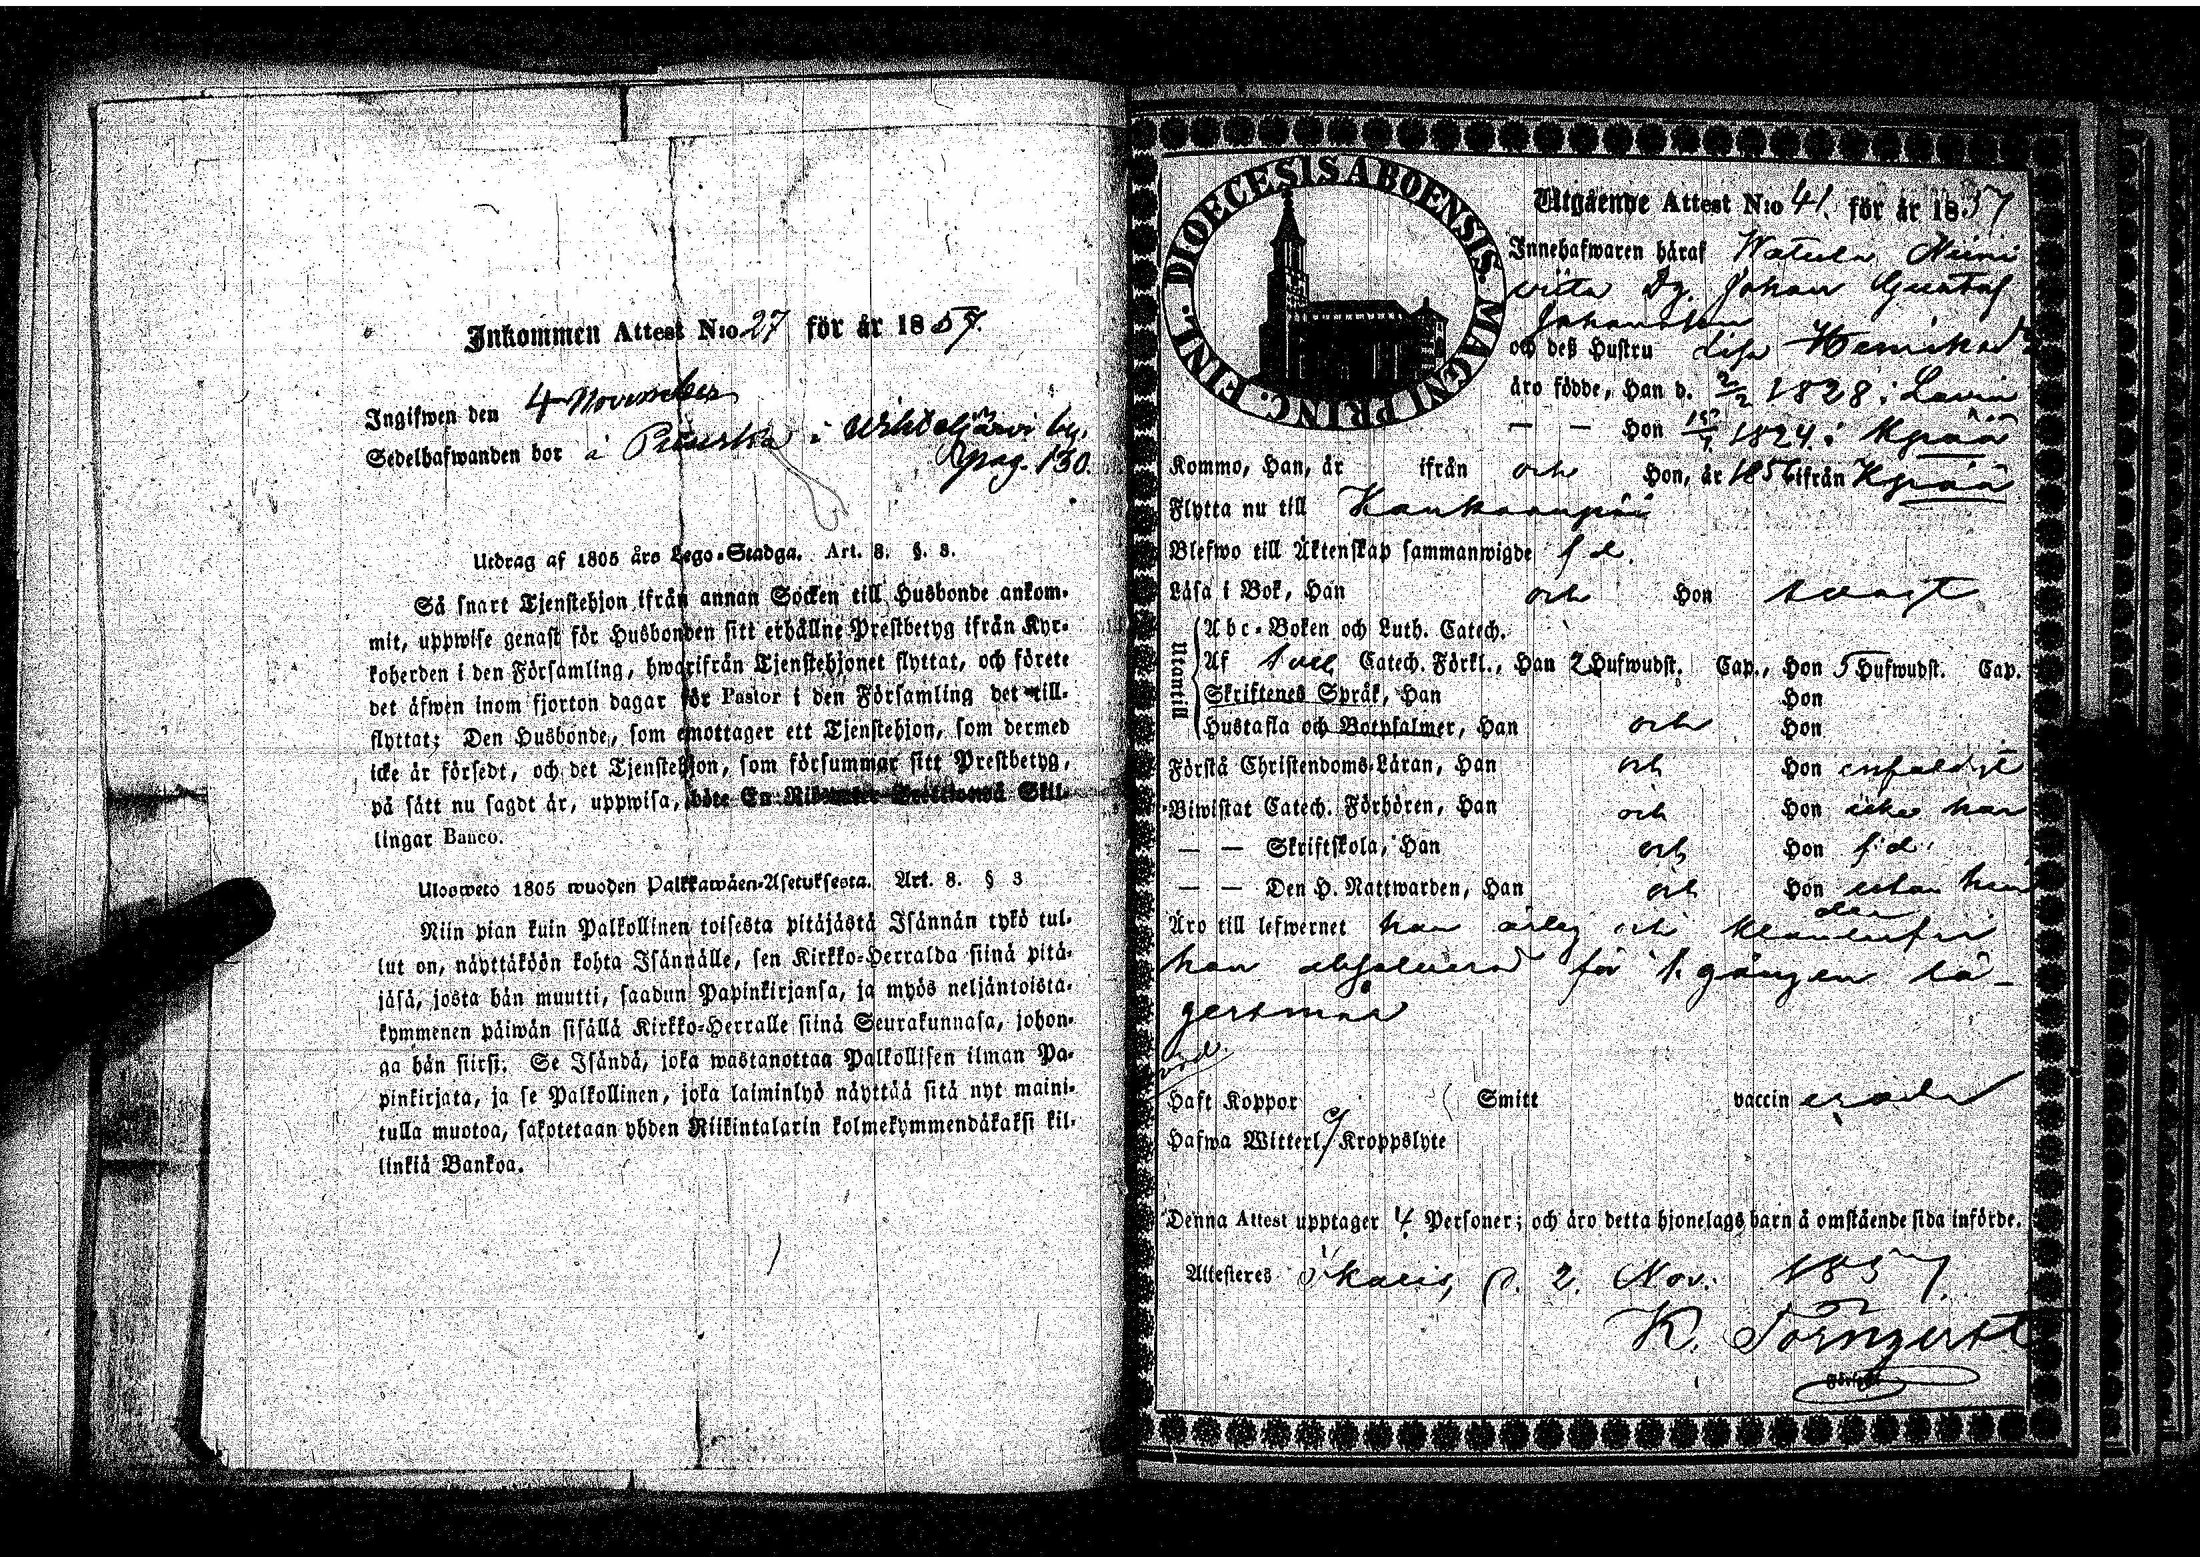 Inkommen Attest N:o 27 för år 1857.
Ingifwen den 4 November
Sedelhafwanden bor i by.
pag. 130.
Utdrag af 1805 års Lego-Stadga. Art. 8. §. 8.
Så snart Tjenstehjon ifrån annan Socken till Husbonde ankom-
mit, uppwise genast för Husbonden sitt erhållne Prestbetyg ifrån Kyr-
koherden i den Församling, hwarifrån Tjenstehjonet flyttat, och förete
det äfwen inom fjorton dagar för Pastor i den Församling det till-
flyttat; Den Husbonde, som emottager ett Tjenstehjon, som dermed
icke är försedt, och det Tjenstehjon, som försummar sitt Prestbetyg,
på sätt nu sagdt är, uppwisa, böte En Skil-
lingar Banco.
Ulosweto 1805 wuoden Palkkawäen-Asetuksesta. Art. 8. § 3
Niin pian kuin Palkollinen toisesta pitäjästä Isännän tykö tul-
lut on, näyttäköön kohta Isännälle, sen Kirkko-Herralda siinä pitä-
jäsä, josta hän muutti, saadun Papinkirjansa, ja myös neljäntoista-
kymmenen päiwän sisällä Kirkko-Herralle siinä Seurakunnasa, johon-
ga hän siirsi. Se Isändä, joka wastanottaa Palkollisen ilman Pa-
pinkirjata, ja se Palkollinen, joka laiminlyö näyttää sitä nyt maini-
tulla muotoa, sakotetaan yhden Riikintalarin kolmekymmendäkaksi kil-
linkiä Bankoa.
DIOECESIS ABOENSIS MAGNI PRINC. FINL.
Utgående Attest N:o 41. för år 1857
Innehafwaren häraf
Johan Gustaf
Johansson
och deß Hustru Lisa
äro födde, Han d. 1828 i Lavia
— — Hon 1824 i Kyrö
Kommo, Han, år ifrån och Hon, år 1856 ifrån
Flytta nu till Kankaanpää
Blefwo till Äktenskap sammanwigde s. d.
Läsa i Bok, Han och Hon svagt
Utantill
Abc-Boken och Luth. Catech.
Af Catech. Förkl., Han 2 Hufwudst. Cap., Hon 5 Hufwudst. Cap.
Skriftenes Språk, Han Hon
Hustafla och Botpsalmer, Han och Hon
Förstå Christendoms-Läran, Han och Hon enfaldigt
Biwistat Catech. Förhören, Han och Hon
— — Skriftskola, Han och Hon s. d.
— — Den H. Nattwarden, Han och Hon
Äro till lefwernet han ärlig och
han absolverad för 1. gången lä-
gersmål
Haft Koppor Smitt vaccinerade
Hafwa Witterl. Kroppslyte
Denna Attest upptager 4 Personer; och äro detta hjonelags barn å omstående sida införde.
Attesteres Ikalis, d. 2. Nov. 1857.
K. Törnqvist